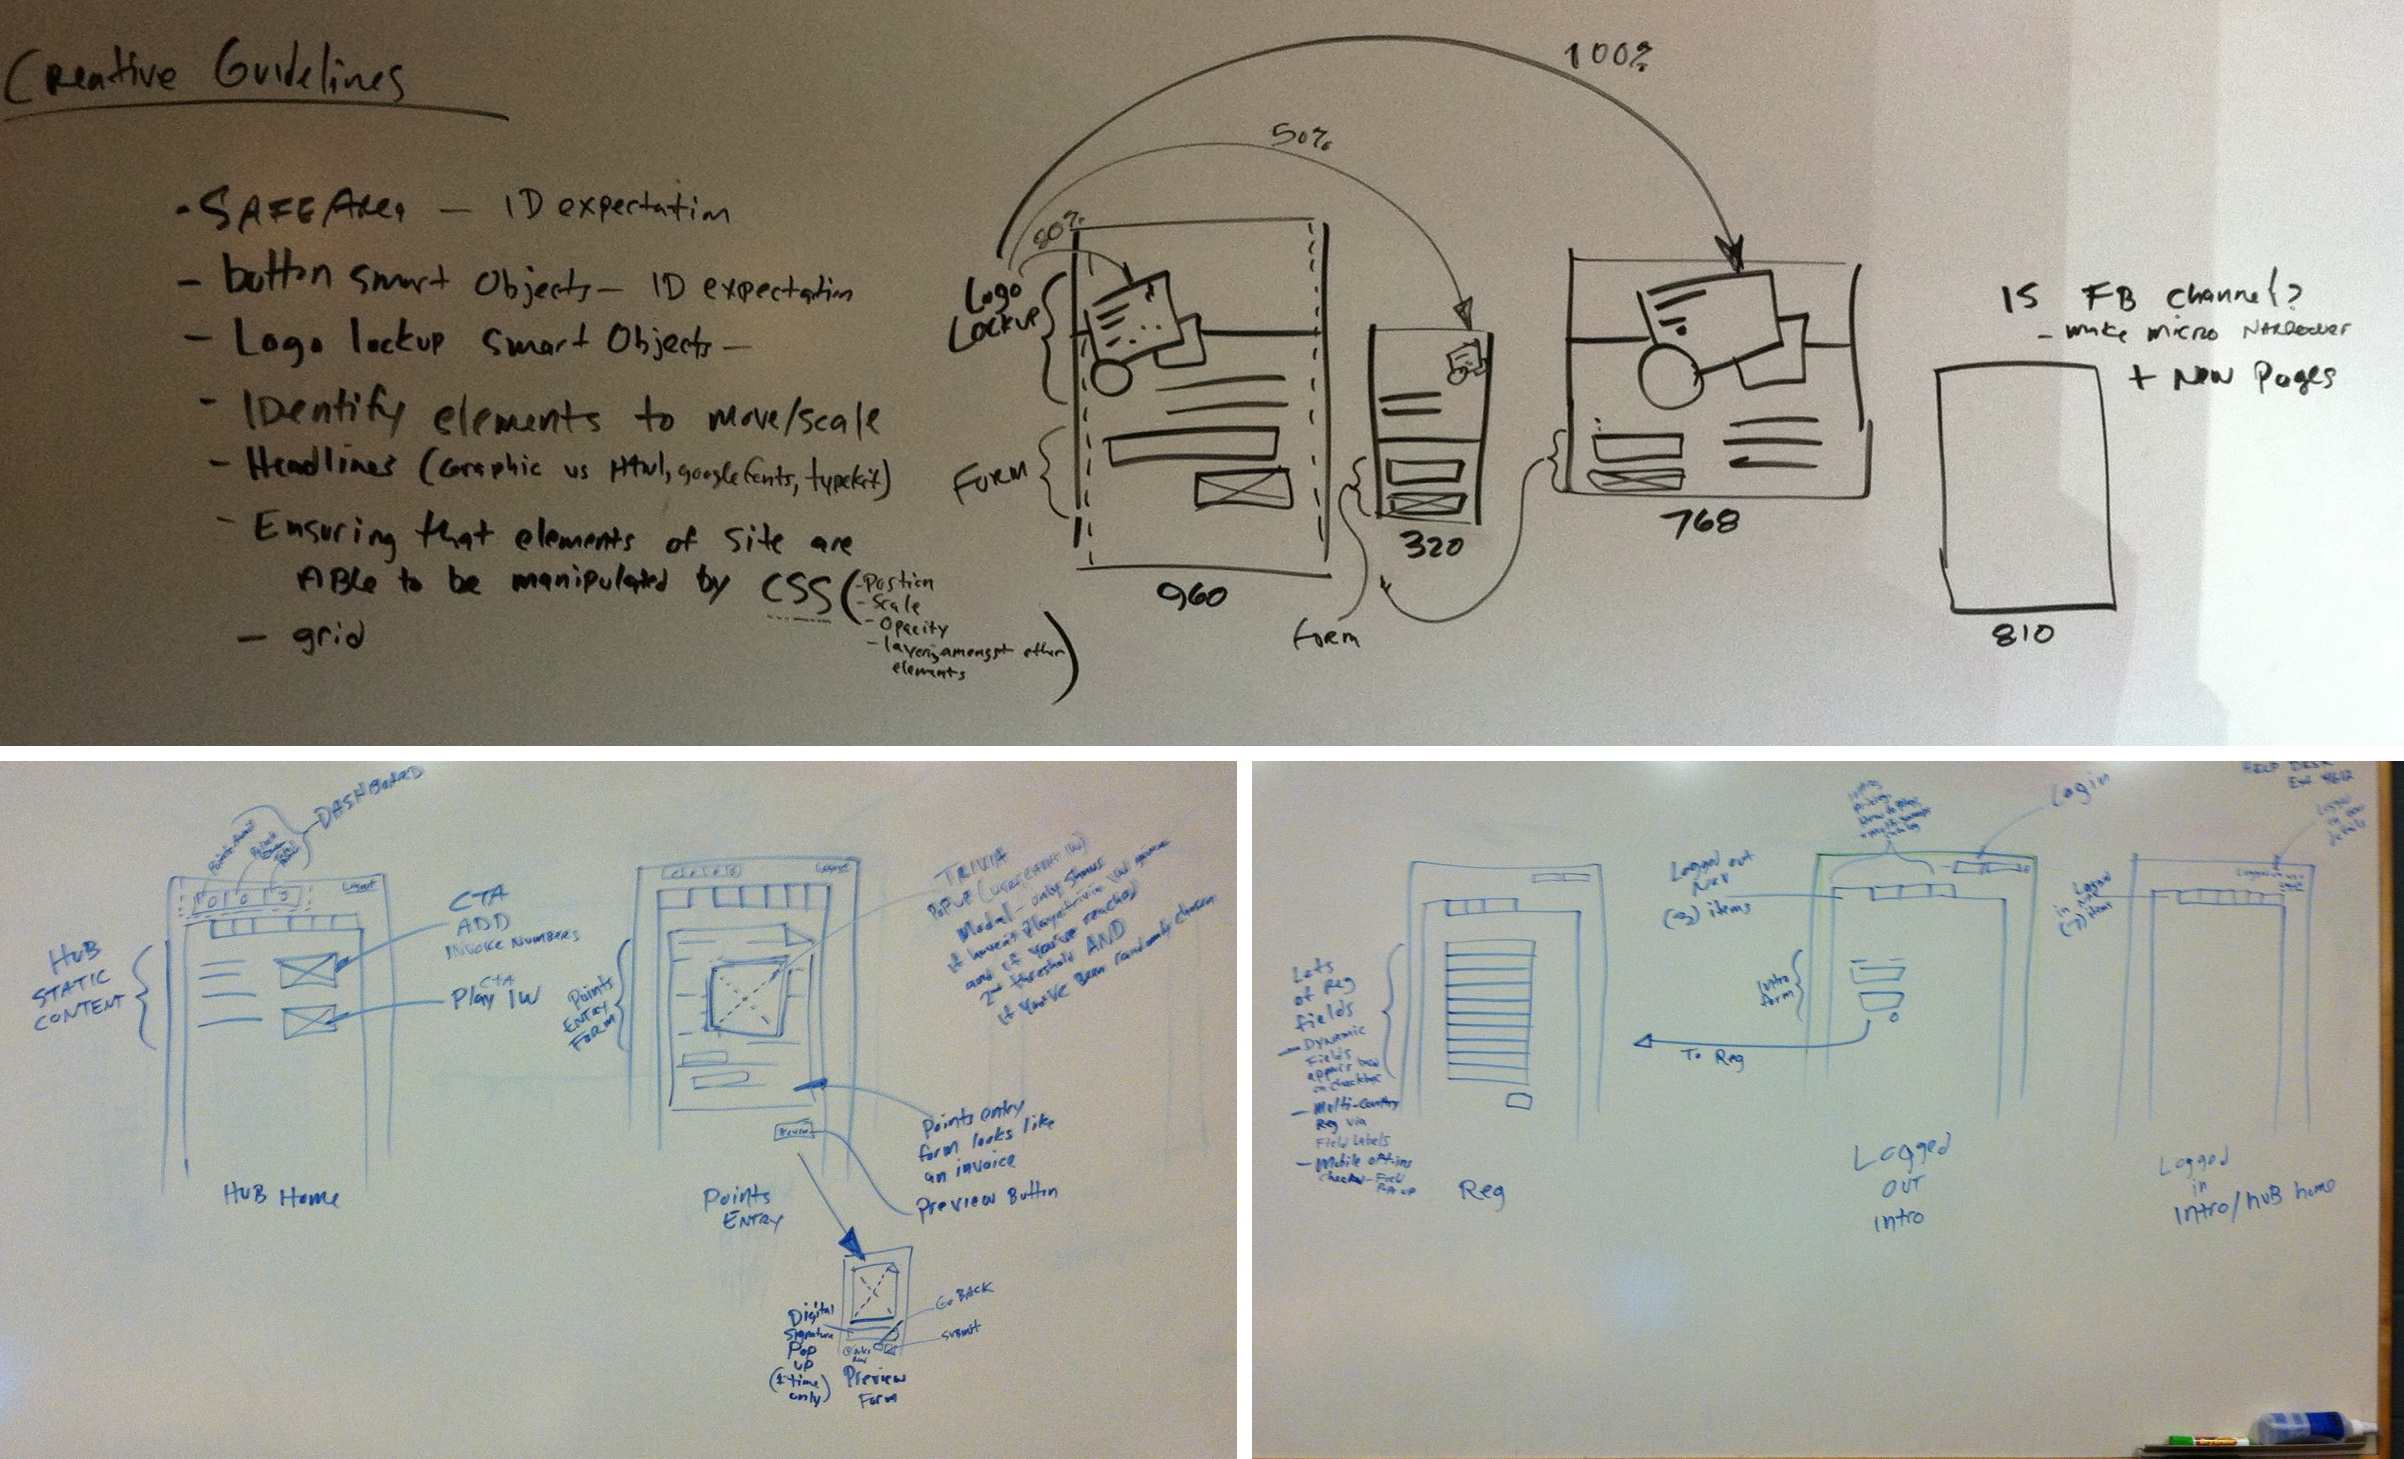 Creative Guidelines
• SAFE Area — ID expectation
– button smart Objects — ID expectation
– Logo lockup smart Objects —
– IDentify elements to move/scale
– Headlines (Graphic vs Html, google fonts, typekit)
– Ensuring that elements of site are
ABle to be manipulated by CSS
- Position
- Scale
- Opacity
- layering amongst other
elements
– grid
100%
50%
80%
Logo
Lockup
Form
960
320
Form
768
IS FB channel?
– make micro Narrower
+ New Pages
810
DASHBOARD
Logout
HUB
STATIC
CONTENT
CTA
ADD
INVOICE NUMBERS
CTA
Play IW
HUB Home
Logout
Points
ENTRY
FORM
TRIVIA
Modal – only shows
if haven't played trivia IW game
and if you've reached
2nd threshold AND
if you've Been randomly chosen
Points entry
form looks like
an invoice
Preview Button
Points
ENTRY
Digital
Signature
Pop
up
(1 time
only)
Go BACK
Submit
Preview
Form
Lots
of Reg
fields
– Dynamic
Fields
– Multi-Country
Reg via
Field Labels
– Mobile opt-ins
Reg
Logged out
Nav
(3) items
Login
Intro
form
To Reg
Logged
OUT
Intro
HELP DESK
Logged
in
(7) items
Logged
in
Intro/HUB home